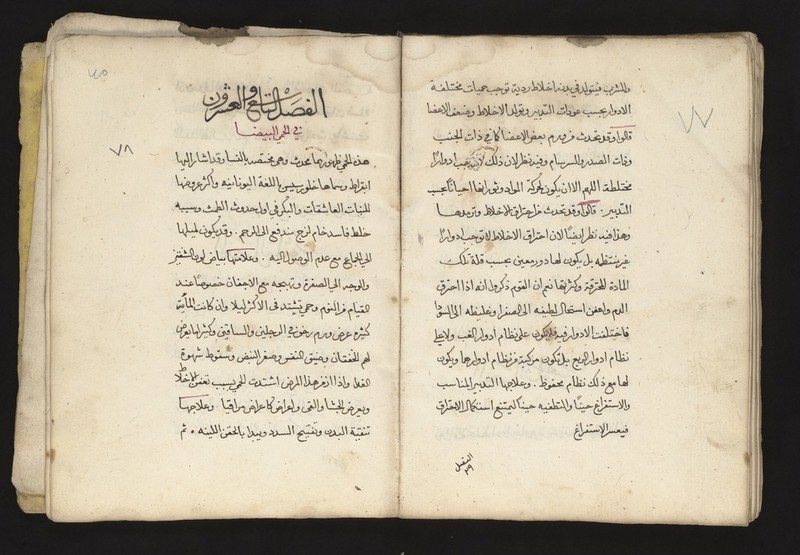 والمشرب فيتولد في بدنه اخلاط ردية توجب حميات مختلفة
الادوار بحسب عودات التدبير وتولد الاخلاط وضعف الاعضا
قالوا وقد تحدث من ورم بعض الاعضا كما في ذات الجنب
وذات الصدر والسرسام وفيه نظر لان ذلك لا يوجب ادوارا
مختلطة اللهم الا ان يكون لحركة المواد وثورانها احيانا بحسب
التدبير . قالوا وقد تحدث من احتراق الاخلاط وترمدها
وهذا فيه نظر ايضا لان احتراق الاخلاط لا توجب ادوارا
غير منتظمه بل يكون لها دور معين بحسب قلة تلك
المادة المحترقة وكثرتها نعم ان القوم ذكروا انه اذا احترق
الدم واحفن استحال لطيفه الى الصفرا وغليظه الى السودا
فاختلفت الادوار فيه فلا يكون على نظام ادوار الغب ولا على
نظام ادوار الربع بل تكون مركبة من نظام ادوارهما ويكون
لها مع ذلك نظام محفوظ . وعلاجها التدبير المناسب
والاستفراغ حينا والتطفيه حينا كيمتنع استكمال الاحتراق
فيعسر الاستفراغ
٧٧
الفصل التاسع والعشرون
في الحمى البيضا
٧٨
هذه الحمى ظهورها يحدث وهي مختصه بالنسا وقد اشار اليها
ابقراط وسماها خلوروسيس باللغة اليونانيه واكثر عروضها
للبنات العاشقات والبكر في اول حدوث الطمث وسببه
خلط فاسد خام لزج مندفع الى الرحم . وقد يكون لميلها
الى الجماع مع عدم الوصول اليه . وعلامتها بياض لون الشفتين
والوجه الى الصفرة وتهيجه مع الاجفان خصوصا عند
القيام من النوم وحمى تشتد في الاكثر ليلا وان كانت المائية
كثيره عرض ورم رخو في الرجلين والساقين وكثيرا ما يعرض
لهم الخفقان وضيق النفس وصغر النبض وسقوط شهوة
الغذا واذا ازمن هذا المرض اشتدت الحمى بسبب تعفن الاخلاط
ويعرض الجشا والغثى واعراض كاعراض مراقيا وعلاجها
تنقية البدن وتفتيح السدد ويبدا بالحقن اللينه . ثم